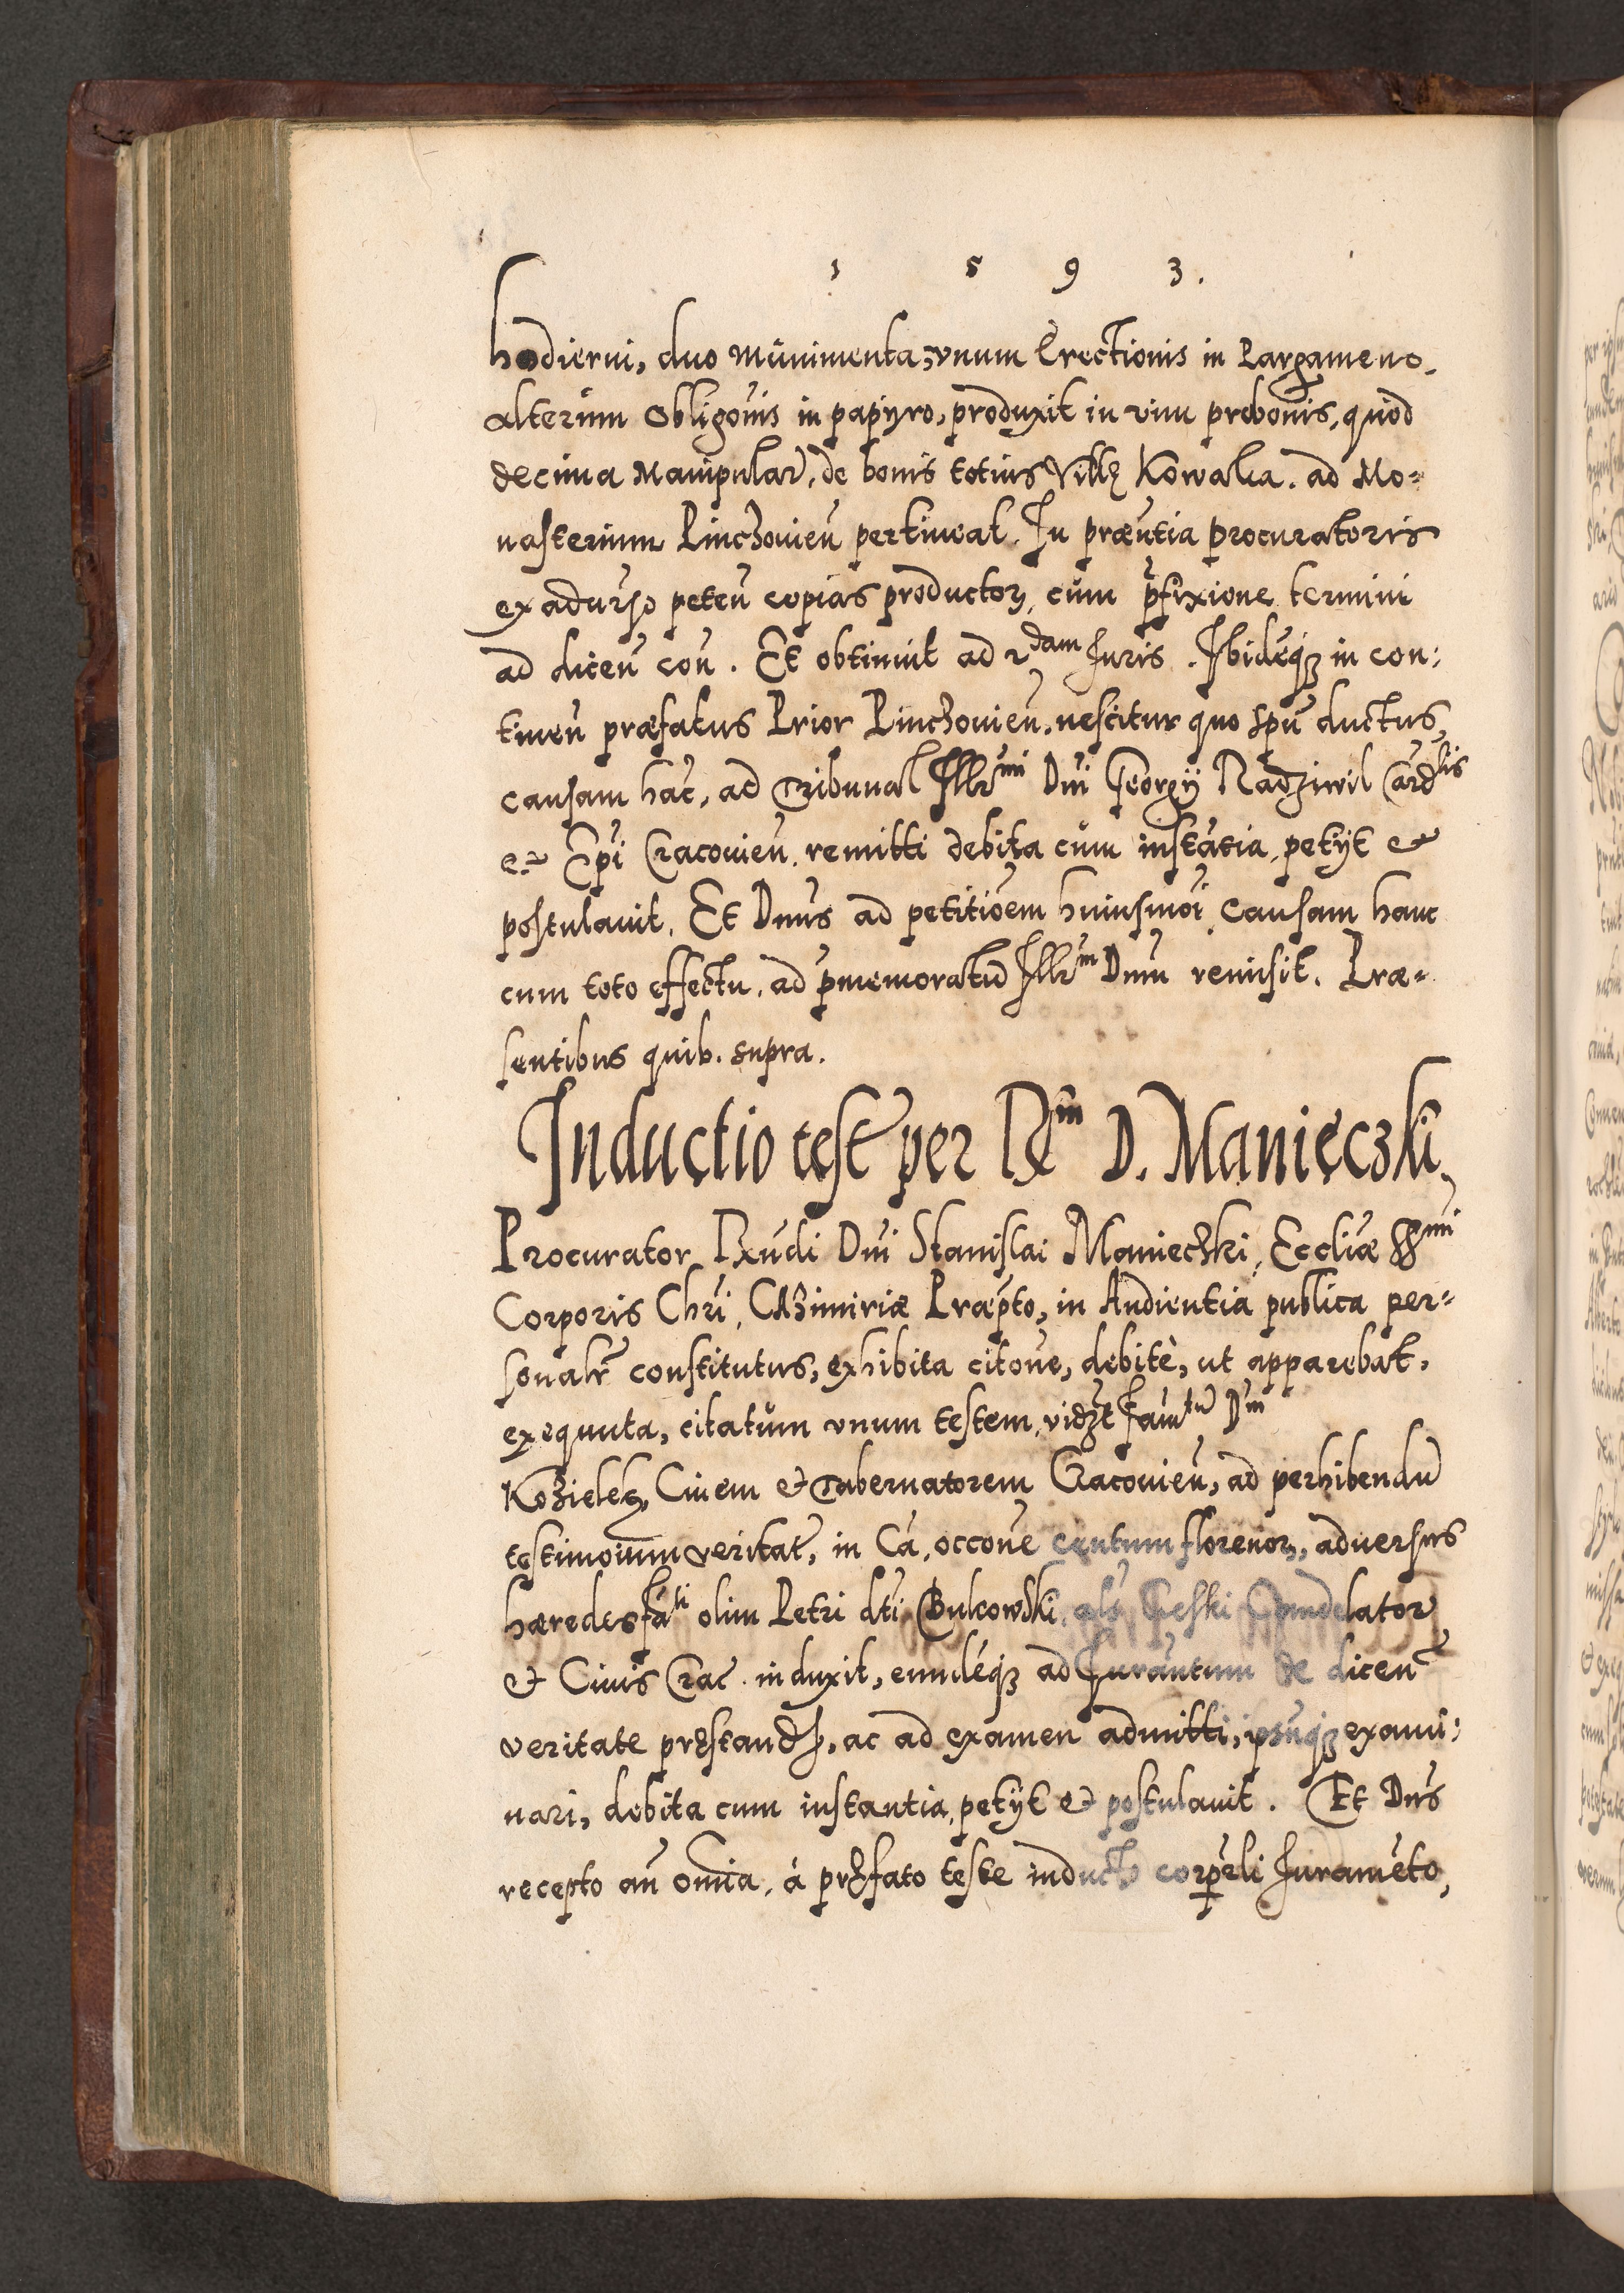 1 5 9 3.
hodierni, duo munimenta, vnum Erectionis in Pargameno,
alterum Obligōnis in papyro, produxit in vim probōnis, quod
decima Manipular̃, de bonis totius Villę Kowala. ad Mo=
nasterium Pinczouien̄ pertineat. In præn̄tia procuratoris
ex aduerso peten̄ copias productorꝝ, cum p̄fixione termini
ad dicen̄ con̄. Et obtinuit ad 2dam Iuris. Ibidēqꝫ in con:
tinen̄ præfatus Prior Pinczouien̄. nescitur quo spū ductus,
causam hāc, ad Tribunal Illrmi Dnī Georgÿ Radziwil Cārdlis
et Ep̄i Cracouien̄. remitti debita cum instātia, petijt et
postulauit. Et Dnūs ad petitiōem huiusmōi causam hanc
cum toto effectu, ad p̄memoratū Illrm Dnm̄ remisit. Præ=
sentibus quib. supra.
Inductio test per Rm D. Manieczki,
Procurator Rn̄di Dnī Stanislai Manieczki, Eccliæ SSmi
Corporis Chrī, Cazimiriæ Præp̄to, in Audientia publica per=
sonalr̄ constitutus, exhibita citōne, debitè, ut apparebat,
exequuta, citatum vnum testem, vidꝫt Fam̄tū Dm̄
Kozielek, Ciuem et Tabernatorem Cracouien̄, ad perhibendū
testimoium veritat̄, in Cā, occōne centum florenorꝝ, aduersus
hæredes fāti olim Petri dtī Bukowski, als Czeski Candelator
et Ciuis Crac̄. induxit, eundēqꝫ ad Iuramn̄tum de dicen̄
veritate præstandū, ac ad examen admitti, ipsūqꝫ exami:
nari, debita cum instantia, petijt et postulauit. Et Dnūs
recepto an̄ omīa, à præfato teste inducto corp̄rli Iuramēto,